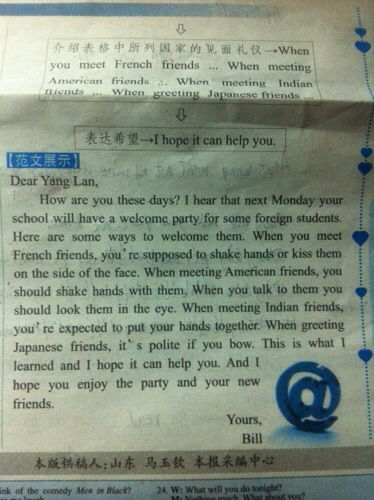 介绍表格中所列国家的见面礼仪→When
you meet French friends ... When meeting
American friends ... When meeting Indian
friends ... When greeting Japanese friends ...
表达希望→I hope it can help you.
【范文展示】
Dear Yang Lan,
How are you these days? I hear that next Monday your
school will have a welcome party for some foreign students.
Here are some ways to welcome them. When you meet
French friends, you're supposed to shake hands or kiss them
on the side of the face. When meeting American friends, you
should shake hands with them. When you talk to them you
should look them in the eye. When meeting Indian friends,
you're expected to put your hands together. When greeting
Japanese friends, it's polite if you bow. This is what I
learned and I hope it can help you. And I
hope you enjoy the party and your new
friends.
Yours,
Bill
@
本版供稿人:山东 马玉钦 本报采编中心
ink of the comedy Men in Black?
24. W: What will you do tonight?
M: Nothing much. What about you?